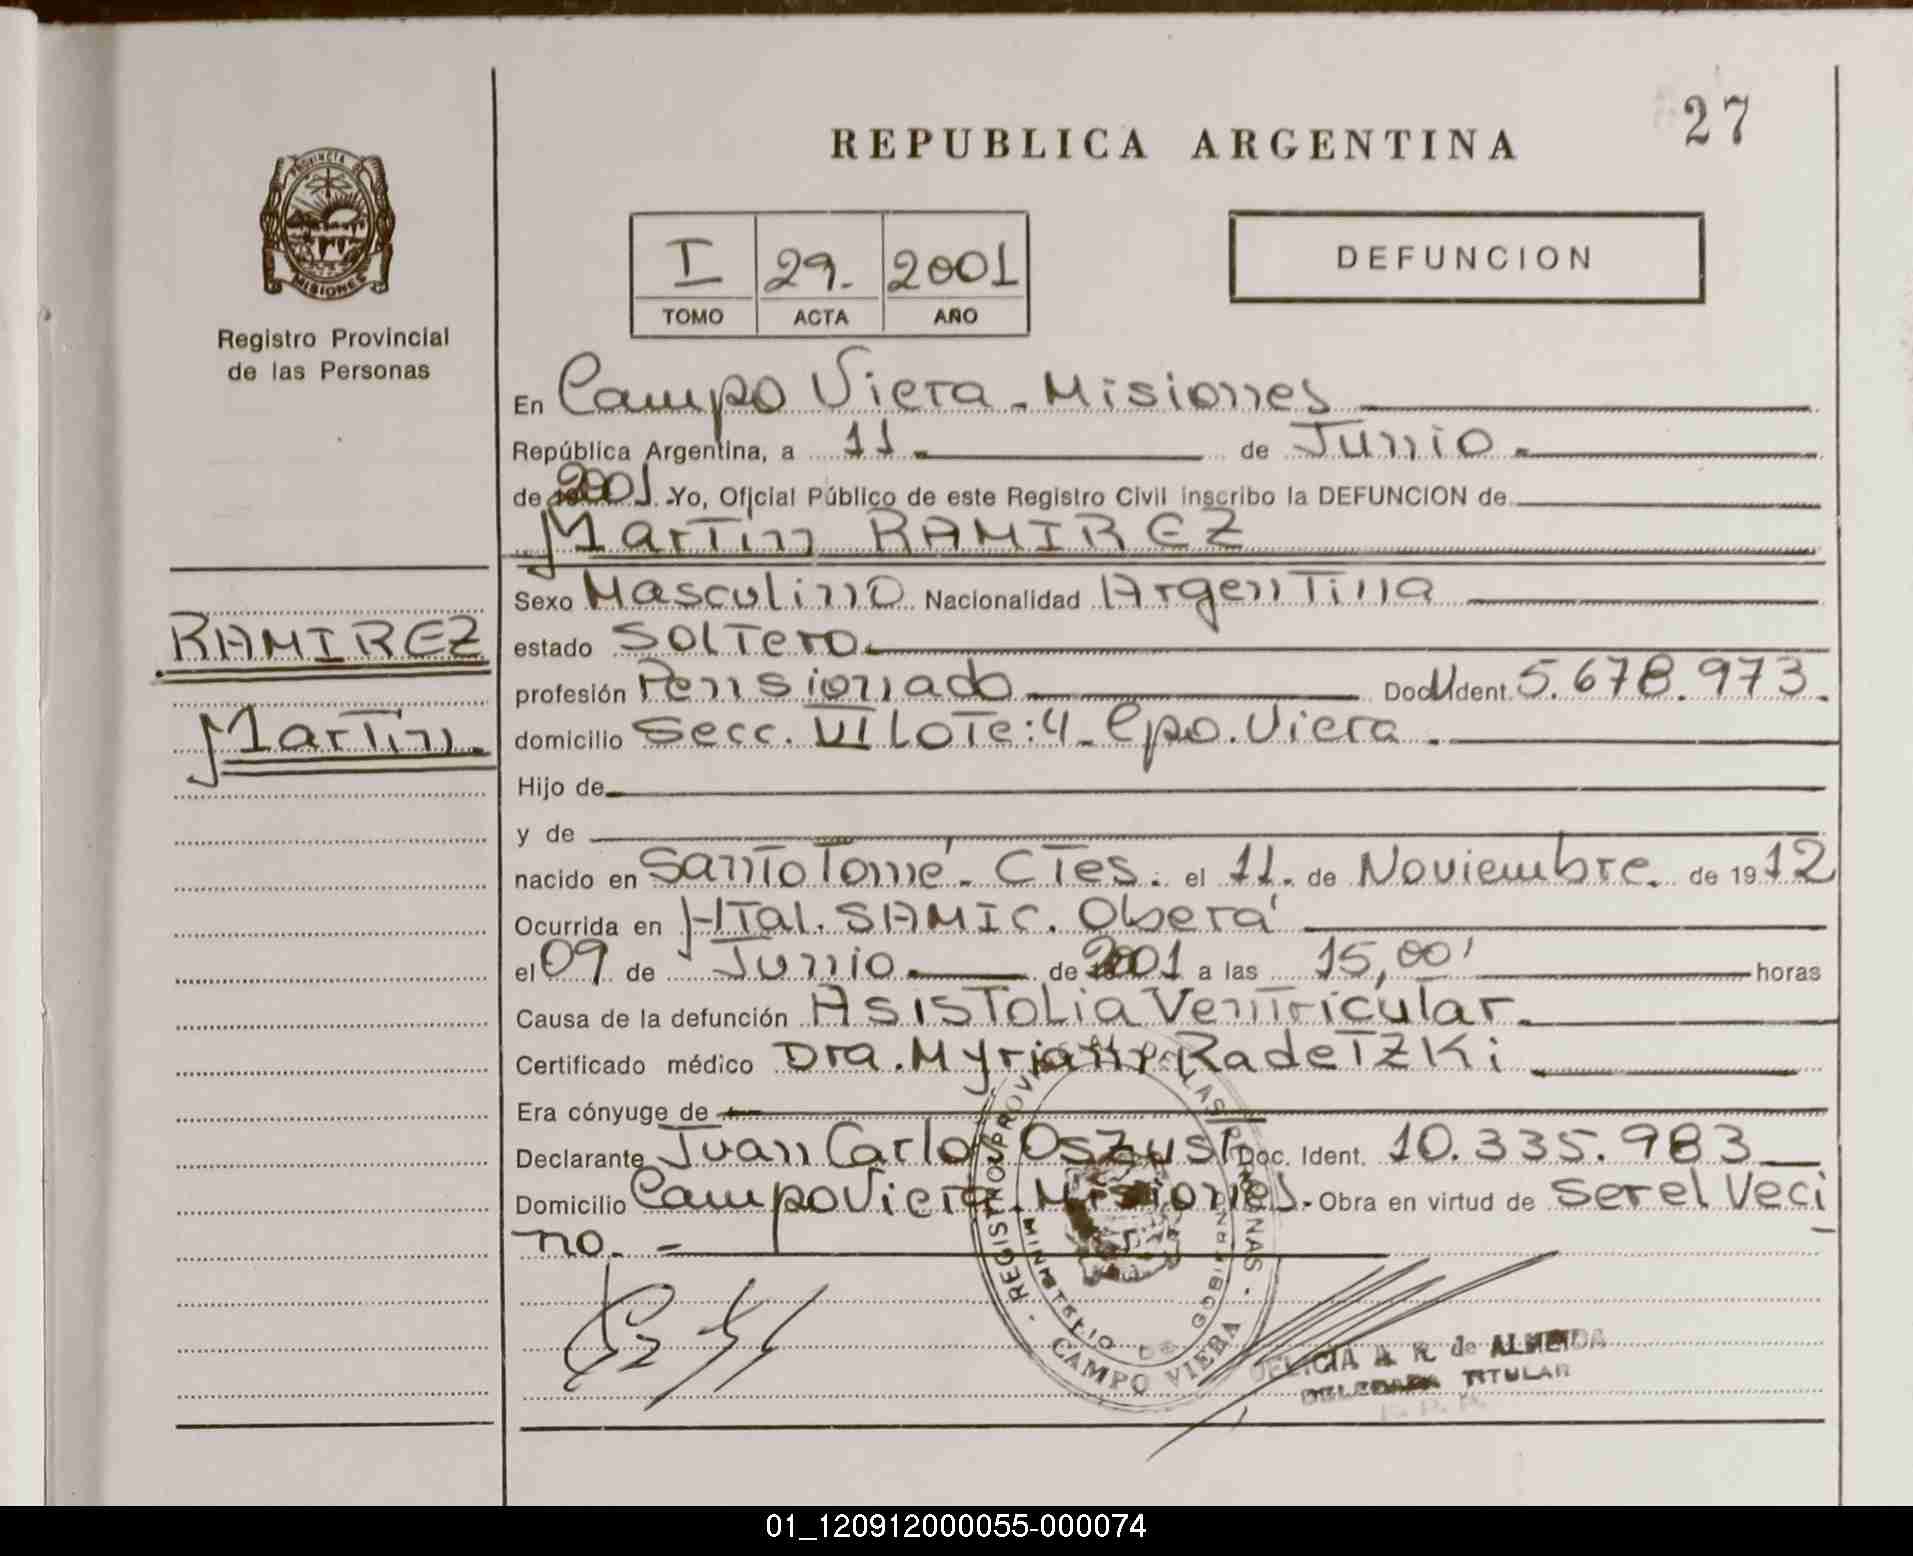 27
REPUBLICA ARGENTINA
PROVINCIA DE
MISIONES
Registro Provincial
de las Personas
I 29. 2001
TOMO ACTA AÑO
DEFUNCION
En Campo Viera - Misiones
República Argentina, a 11 de Junio.
de 2001. Yo, Oficial Público de este Registro Civil inscribo la DEFUNCION de
Martin RAMIREZ
RAMIREZ
Martin.
Sexo Masculino Nacionalidad Argentina
estado Soltero
profesión Pensionado Doc. Ident. 5.678.973.
domicilio Secc. VI Lote: 4 - Cpo. Viera.
Hijo de
y de
nacido en Santo Tomé - Ctes. el 11. de Noviembre. de 1912
Ocurrida en Htal. SAMIC. Oberá
el 09 de Junio. de 2001 a las 15,00' horas
Causa de la defunción Asistolia Ventricular.
Certificado médico Dra. Myriam Radetzki
Era cónyuge de
Declarante Juan Carlos Oszust Doc. Ident. 10.335.983
Domicilio Campo Viera - Misiones. - Obra en virtud de ser el Veci
no. -
REGISTRO PROVINCIAL DE LAS PERSONAS
MINISTERIO DE GOBIERNO
CAMPO VIERA
FELICIA A. R. de ALMEIDA
DELEGADA TITULAR
R. P. P.
01_120912000055-000074